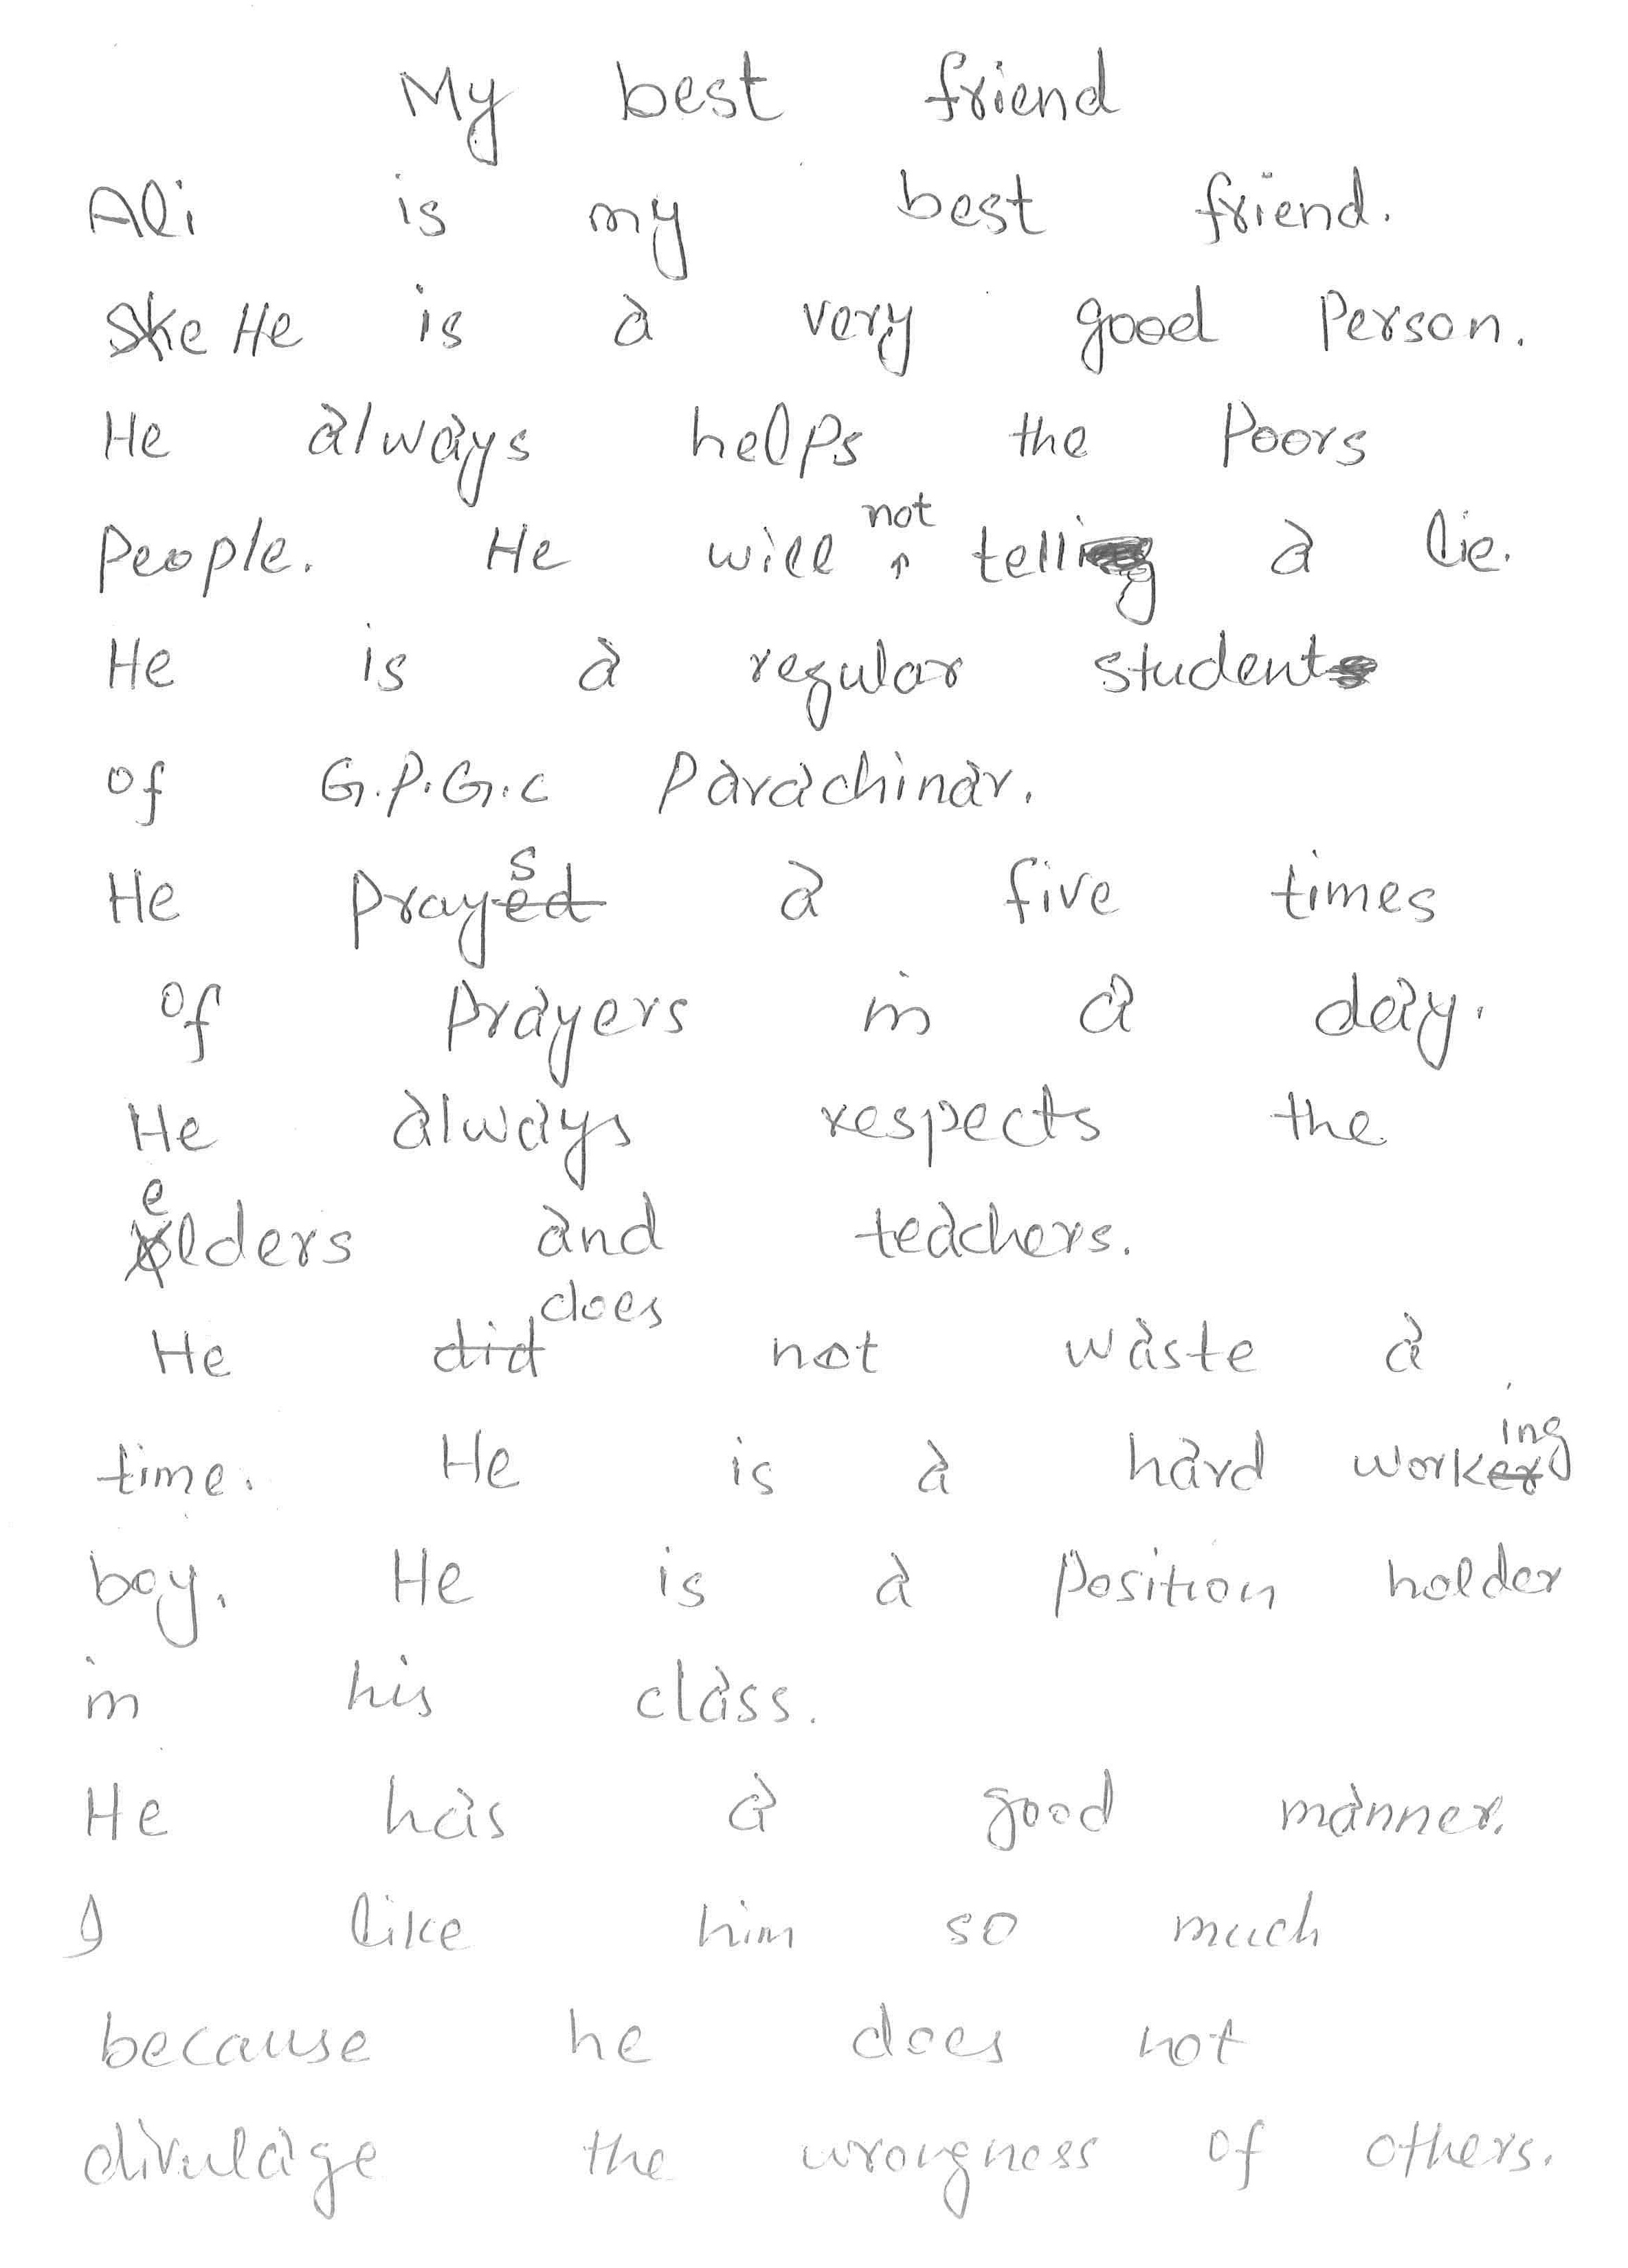 My best friend
Ali is my best friend.
She He is a very good Person.
He always helps the Poors
People. He will not tell a lie.
He is a regular student
of G.P.G.C Parachinar.
He prays a five times
of prayers in a day.
He always respects the
elders and teachers.
He did does not waste a
time. He is a hard working
boy. He is a position holder
in his class.
He has a good manner.
I like him so much
because he does not
divulage the wrongness of others.